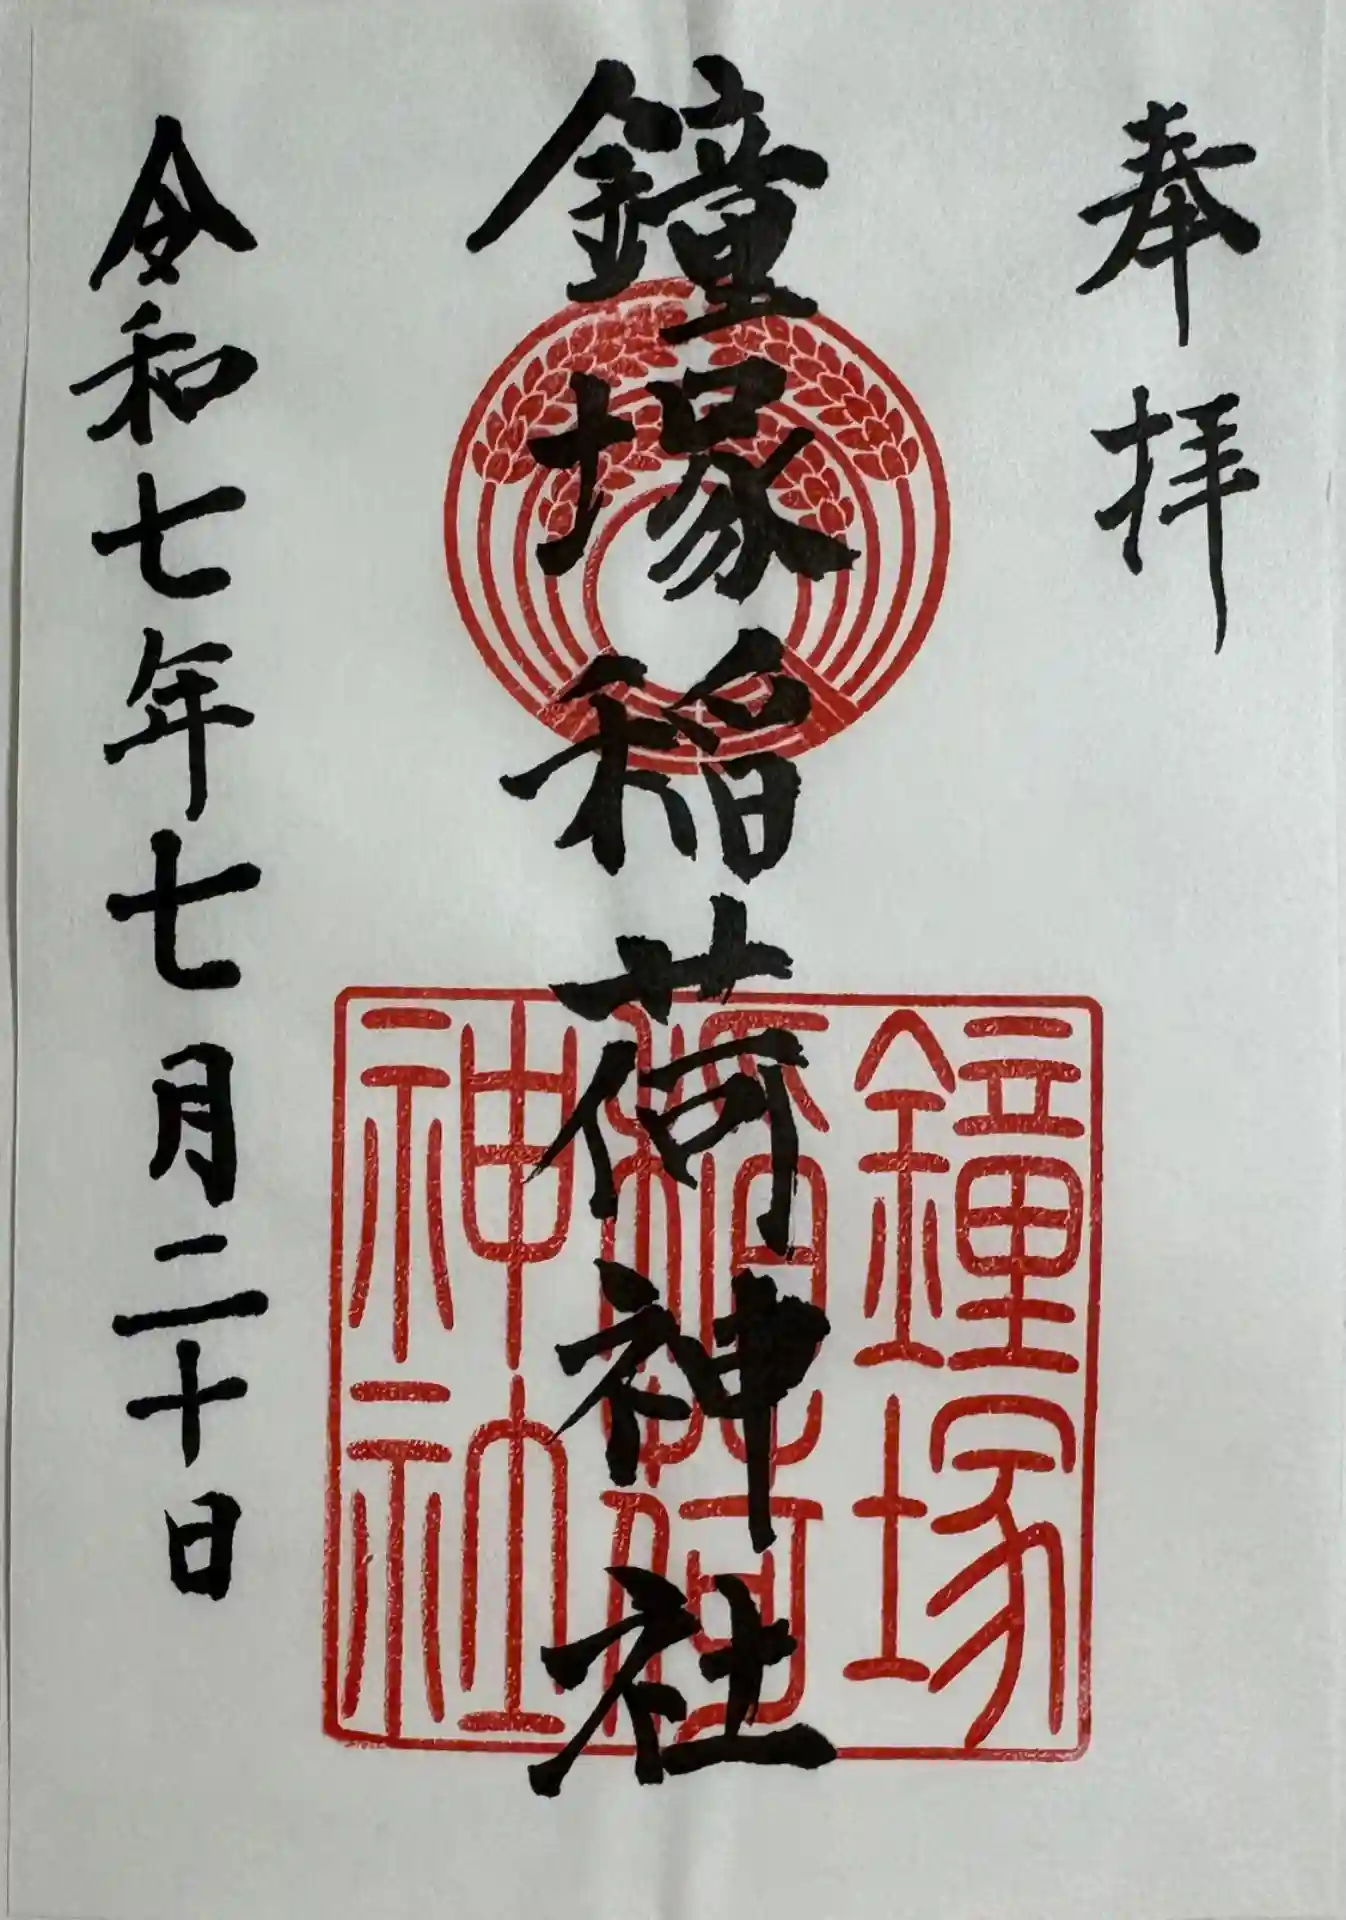 奉拝
鐘塚稲荷神社
鐘塚
稲荷
神社
令和七年七月二十日